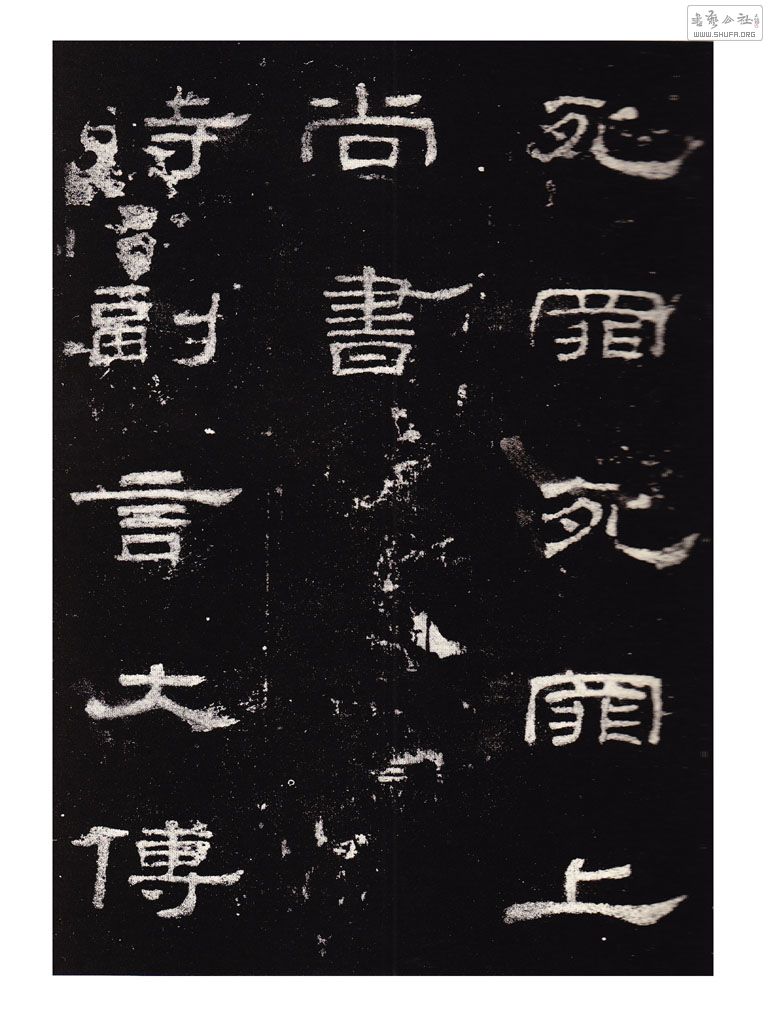 死罪死罪上
尚書
時副言大傅
書藝公社
WWW.SHUFA.ORG